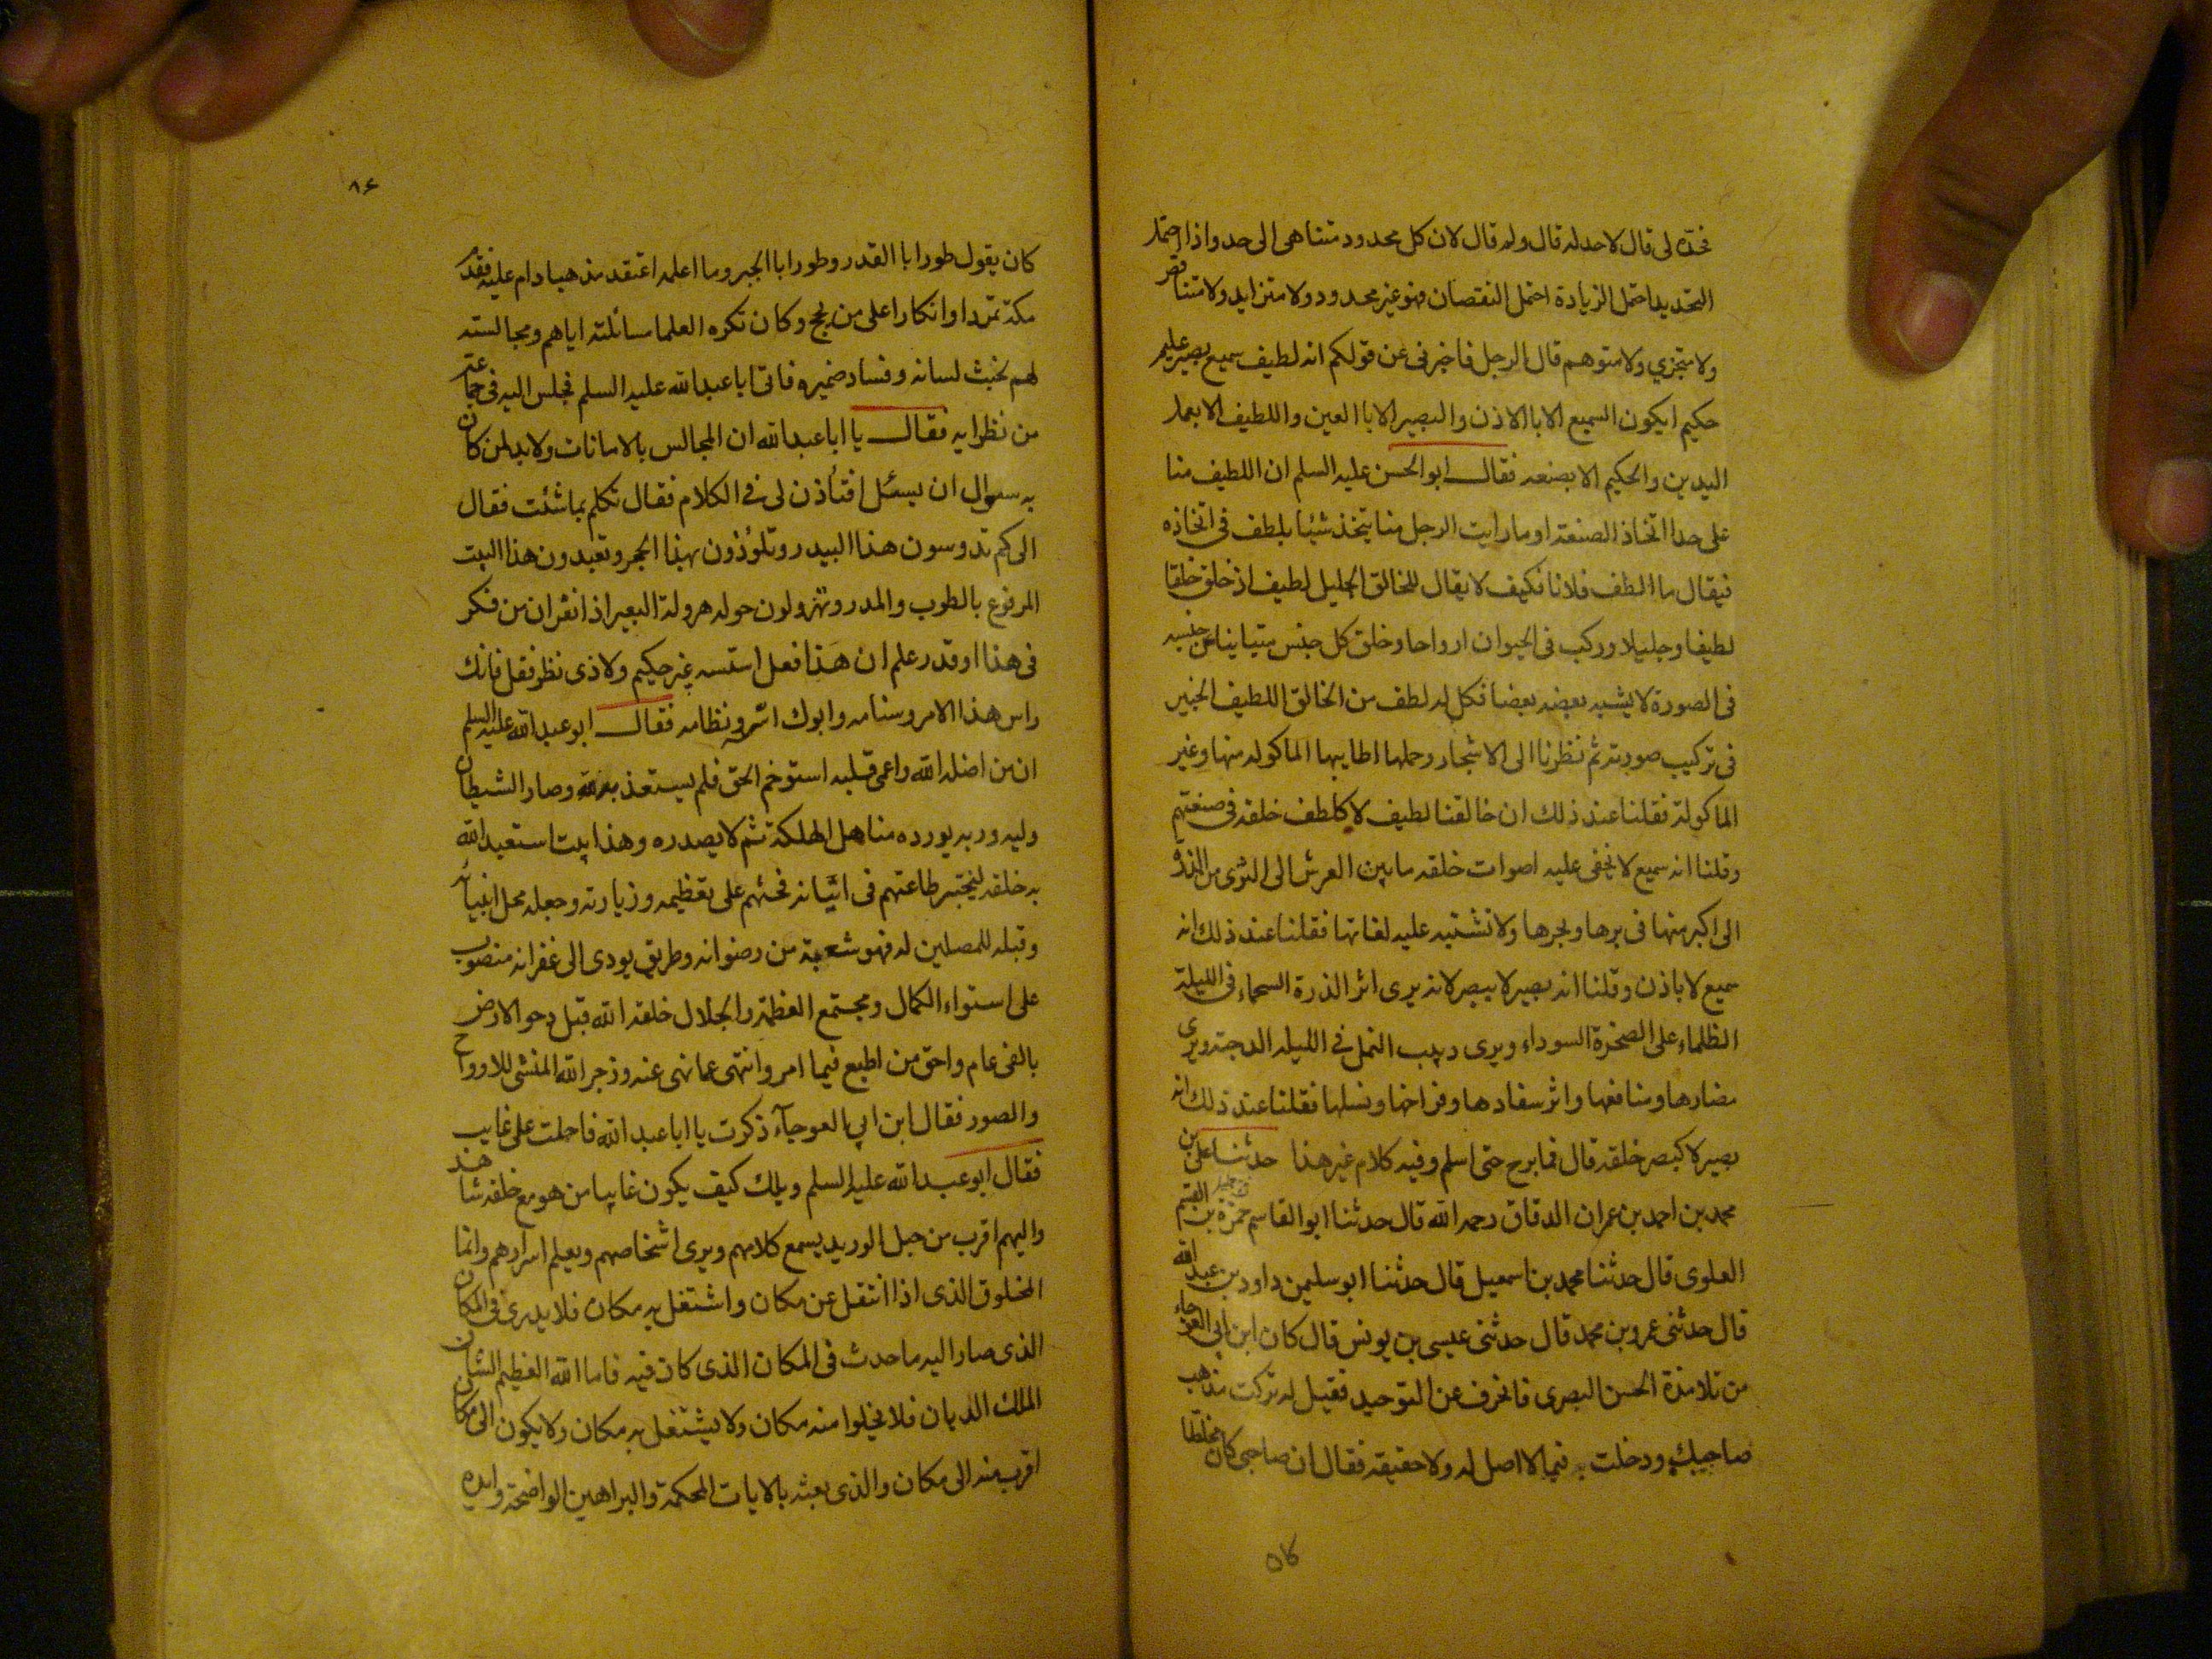 فحده لى قال لا حد له قال ولم قال لان كل محدود متناهى الى حد واذا احتمل
التحديد احتمل الزيادة احتمل النقصان فهو غير محدود ولا متزايد ولا متناقص
ولا متجزي ولا متوهم قال الرجل فاخبرنى عن قولكم انه لطيف سميع بصير عليم
حكيم ايكون السميع الا باالاذن والبصير الا باالعين واللطيف الا بعمل
اليدين والحكيم الا بصنعه فقال ابو الحسن عليه السلم ان اللطيف منا
على حد اتخاذ الصنعة او ما رايت الرجل منا يتخذ شيئا بلطف فى اتخاذه
فيقال ما الطف فلانا فكيف لا يقال للخالق الجليل لطيف اذ خلق خلقا
لطيفا وجليلا وركب فى الحيوان ارواحا وخلق كل جنس متبايناً عن جنسه
فى الصورة لا يشبه بعضه بعضا فكل له لطف من الخالق اللطيف الخبير
فى تركيب صورته ثم نظرنا الى الاشجار وحملها اطايبها الماكوله منها وغير
الماكولة فقلنا عند ذلك ان خالقنا لطيف لا كلطف خلقه فى صنعتهم
وقلنا انه سميع لا يخفى عليه اصوات خلقه ما بين العرش الى الثرى من الذرة
الى اكبر منها فى برها وبحرها ولا تشتبه عليه لغاتها فقلنا عند ذلك انه
سميع لا باذن وقلنا انه بصير لا ببصر لانه يرى اثر الذرة السحماء فى الليلة
الظلماء على الصخرة السوداء ويرى دبيب النمل في الليله الدجنة ويرى
مضارها ومنافعها واثر سفادها وفراخها ونسلها فقلنا عند ذلك انه
بصير لا كبصر خلقه قال فما برح حتى اسلم وفيه كلام غير هذا حدثنا على بن
محمد بن احمد بن عمران الدقاق رحمه الله قال حدثنا ابو القاسم حمزة بن القسم
العلوى قال حدثنا محمد بن اسمعيل قال حدثنا ابو سليمن داود بن عبد الله
قال حدثنى عمرو بن محمد قال حدثنى عيسى بن يونس قال كان ابن ابي العوجاء
من تلامذة الحسن البصرى فانحرف عن التوحيد فقيل له تركت مذهب
صاحبك ودخلت فيما لا اصل له ولا حقيقة فقال ان صاحبى كان مخلطا
٨٦
كان يقول طورا باالقدر وطورا باالجبر وما اعلمه اعتقد مذهبا دام عليه فقدم
مكة تمردا وانكارا على من يحج وكان تكره العلما مسائلته اياهم ومجالسته
لهم لخبث لسانه وفساد ضميره فاتى ابا عبدالله عليه السلم فجلس اليه فى جماعة
من نظرايه فقال يا ابا عبدالله ان المجالس بالامانات ولا بد لمن كان
به سوال ان يسئل افتأذن لى فى الكلام فقال تكلم بما شئت فقال
الى كم تدوسون هذا البيدر وتلوذون بهذا الحجر وتعبدون هذا البيت
المرفوع بالطوب والمدر وتهرولون حوله هرولة البعير اذا نفر ان من فكر
فى هذا او قدر علم ان هذا فعل استسه غير حكيم ولا ذى نظر فقل فانك
راس هذا الامر وسنامه وابوك اسه ونظامه فقال ابو عبدالله عليه السلم
ان من اضله الله واعمى قلبه استوخم الحق فلم يستعذ به وصار الشيطان
وليه وربه يورده مناهل الهلكة ثم لا يصدره وهذا بيت استعبد الله
به خلقه ليختبر طاعتهم فى اتيانه فحثهم على تعظيمه وزيارته وجعله محل انبيائه
وقبله للمصلين له فهو شعبة من رضوانه وطريق يودى الى غفرانه منصوب
على استواء الكمال ومجتمع العظمة والجلال خلقه الله قبل دحو الارض
بالفى عام واحق من اطيع فيما امر وانتهى عما نهى عنه وزجر الله المنشى للارواح
والصور فقال ابن ابي العوجآء ذكرت يا ابا عبدالله فاحلت على غايب
فقال ابو عبدالله عليه السلم ويلك كيف يكون غايبا من هو مع خلقه شاهد
واليهم اقرب من حبل الوريد يسمع كلامهم ويرى اشخاصهم ويعلم اسرارهم وانما
المخلوق الذى اذا انتقل عن مكان واشتغل به مكان فلا يدرى فى المكان
الذى صار اليه ما حدث فى المكان الذى كان فيه فاما الله العظيم الشان
الملك الديان فلا يخلوا منه مكان ولا يشتغل به مكان ولا يكون الى مكان
اقرب منه الى مكان والذى بعثه بالايات المحكمة والبراهين الواضحة وايده